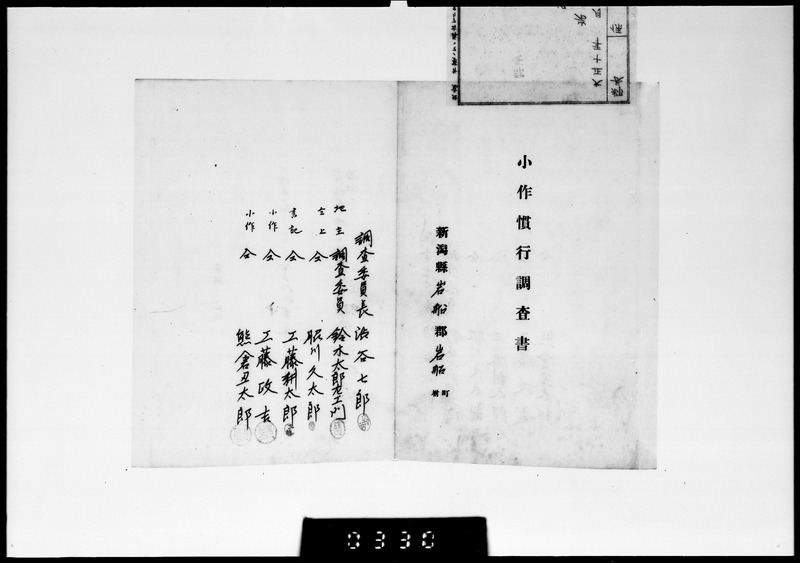 小作慣行調査書
新潟縣岩船郡岩船町村
調査委員長 治谷七郎
地主 調査委員 鈴木太郎左エ門
仝上 仝 眼川久太郎
書記 仝 工藤耕太郎
小作 仝 工藤政吉
小作 仝 熊倉丑太郎
大正十年
0330